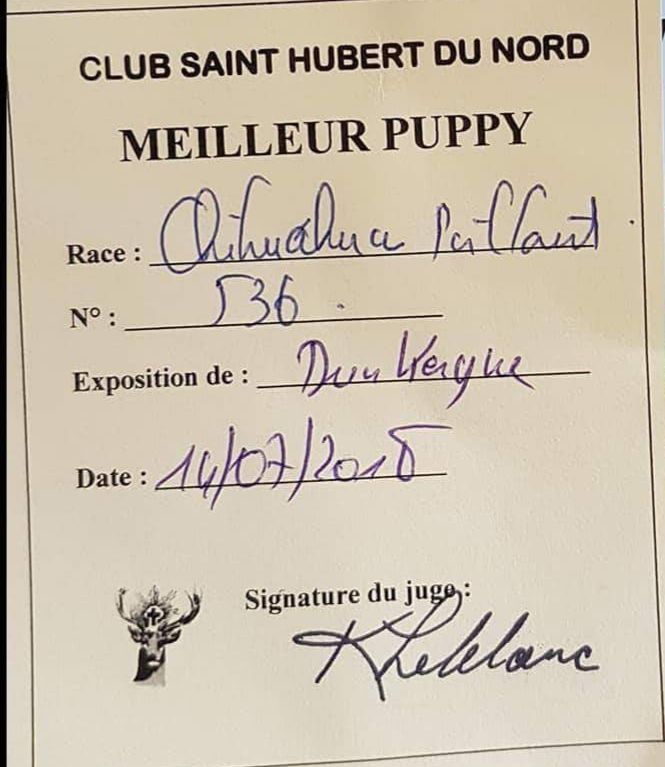 CLUB SAINT HUBERT DU NORD
MEILLEUR PUPPY
Race : Chihuahua Poil Court
N° : 536
Exposition de : Dunkerque
Date : 14/07/2018
Signature du juge :
Leblanc